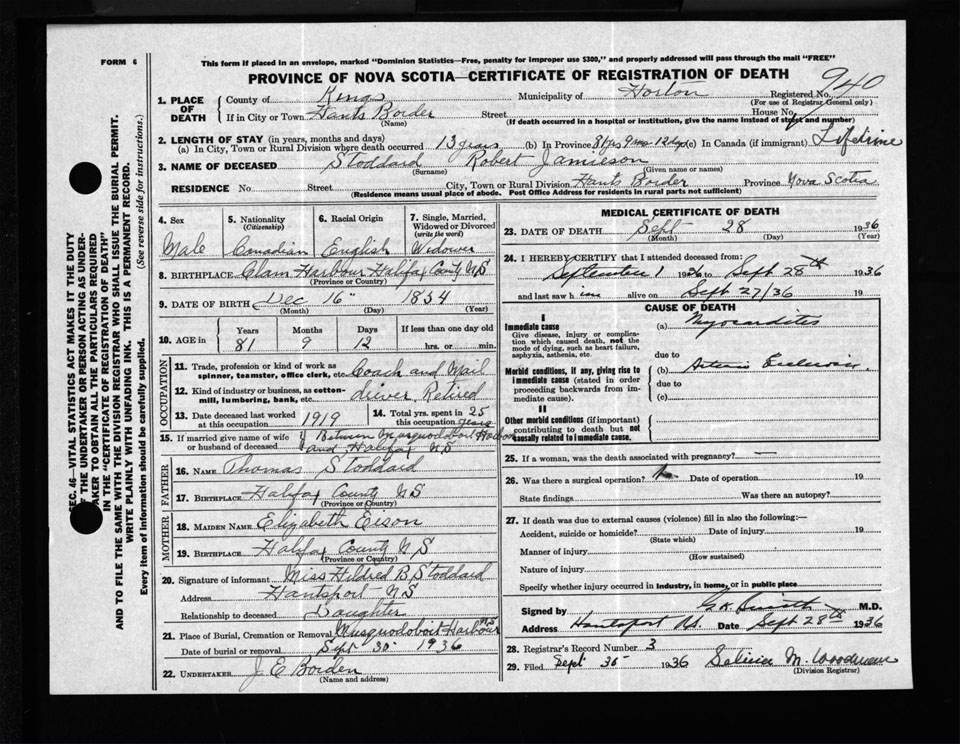 FORM 6
This form if placed in an envelope, marked "Dominion Statistics—Free, penalty for improper use $300," and properly addressed will pass through the mail "FREE"
PROVINCE OF NOVA SCOTIA—CERTIFICATE OF REGISTRATION OF DEATH
940
1. PLACE OF DEATH
County of Kings Municipality of Horton Registered No.
(For use of Registrar General only)
If in City or Town Hants Border Street House No.
(Name) (If death occurred in a hospital or institution, give the name instead of street and number)
2. LENGTH OF STAY (in years, months and days)
(a) In City, Town or Rural Division where death occurred 13 years (b) In Province 81 yrs 9 mos 12 dys (c) In Canada (if immigrant) Lifetime
3. NAME OF DECEASED Stoddard Robert Jamieson
(Surname) (Given name or names)
RESIDENCE No. Street City, Town or Rural Division Hants Border Province Nova Scotia
(Residence means usual place of abode. Post Office Address for residents in rural parts not sufficient)
SEC. 46—VITAL STATISTICS ACT MAKES IT THE DUTY
OF THE UNDERTAKER OR PERSON ACTING AS UNDERTAKER TO OBTAIN ALL THE PARTICULARS REQUIRED
IN THE "CERTIFICATE OF REGISTRATION OF DEATH"
AND TO FILE THE SAME WITH THE DIVISION REGISTRAR WHO SHALL ISSUE THE BURIAL PERMIT.
WRITE PLAINLY WITH UNFADING INK. THIS IS A PERMANENT RECORD.
Every item of information should be carefully supplied. (See reverse side for instructions.)
4. Sex 5. Nationality (Citizenship) 6. Racial Origin 7. Single, Married, Widowed or Divorced (write the word)
Male Canadian English Widower
8. BIRTHPLACE Clam Harbour Halifax County NS
(Province or Country)
9. DATE OF BIRTH Dec 16" 1854
(Month) (Day) (Year)
10. AGE in Years Months Days If less than one day old
81 9 12 hrs. or min.
OCCUPATION
11. Trade, profession or kind of work as spinner, teamster, office clerk, etc. Coach and Mail
12. Kind of industry or business, as cotton-mill, lumbering, bank, etc. driver Retired
13. Date deceased last worked at this occupation 1919 14. Total yrs. spent in this occupation 25 years
15. If married give name of wife or husband of deceased Between Musquodoboit Harbour
and Halifax NS
FATHER
16. NAME Thomas Stoddard
17. BIRTHPLACE Halifax County NS
(Province or Country)
MOTHER
18. MAIDEN NAME Elizabeth Eison
19. BIRTHPLACE Halifax County NS
(Province or Country)
20. Signature of informant Miss Hildred B Stoddard
Address Hantsport NS
Relationship to deceased Daughter
21. Place of Burial, Cremation or Removal Musquodoboit Harbour NS
Date of burial or removal Sept 30 1936
22. UNDERTAKER J E Borden
(Name and address)
MEDICAL CERTIFICATE OF DEATH
23. DATE OF DEATH Sept 28 1936
(Month) (Day) (Year)
24. I HEREBY CERTIFY that I attended deceased from:
September 1 1936 to Sept 28th 1936
and last saw him alive on Sept 27/36 19
CAUSE OF DEATH
I
Immediate cause (a) Myocarditis
Give disease, injury or complication which caused death, not the mode of dying, such as heart failure, asphyxia, asthenia, etc.
due to
Morbid conditions, if any, giving rise to immediate cause (stated in order proceeding backwards from immediate cause). (b) Arterio
due to
(c)
II
Other morbid conditions (if important) contributing to death but not causally related to immediate cause.
25. If a woman, was the death associated with pregnancy? —
26. Was there a surgical operation? No Date of operation 19
State findings Was there an autopsy?
27. If death was due to external causes (violence) fill in also the following:—
Accident, suicide or homicide? Date of injury 19
(State which)
Manner of injury
(How sustained)
Nature of injury
Specify whether injury occurred in industry, in home, or in public place
Signed by M.D.
Address Hantsport NS. Date Sept 28th 1936
28. Registrar's Record Number 3
29. Filed Sept 30 1936 Selina M. Woodman
(Division Registrar)